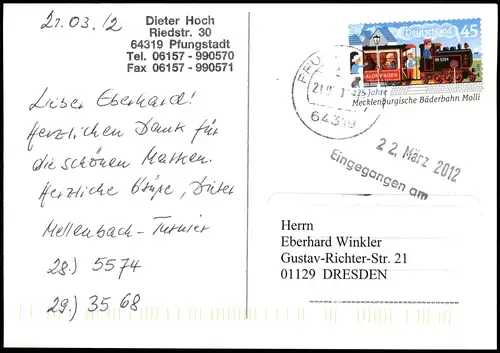 21.03.12
Dieter Hoch
Riedstr. 30
64319 Pfungstadt
Tel. 06157 - 990570
Fax 06157 - 990571
Lieber Eberhard!
Herzlichen Dank für
die schönen Marken.
Herzliche Grüße, Dieter
Mellenbach-Turnier
28.) 5574
29.) 3568
Deutschland 45
125 Jahre
Mecklenburgische Bäderbahn Molli
64319
22. März 2012
Eingegangen am
Herrn
Eberhard Winkler
Gustav-Richter-Str. 21
01129 DRESDEN